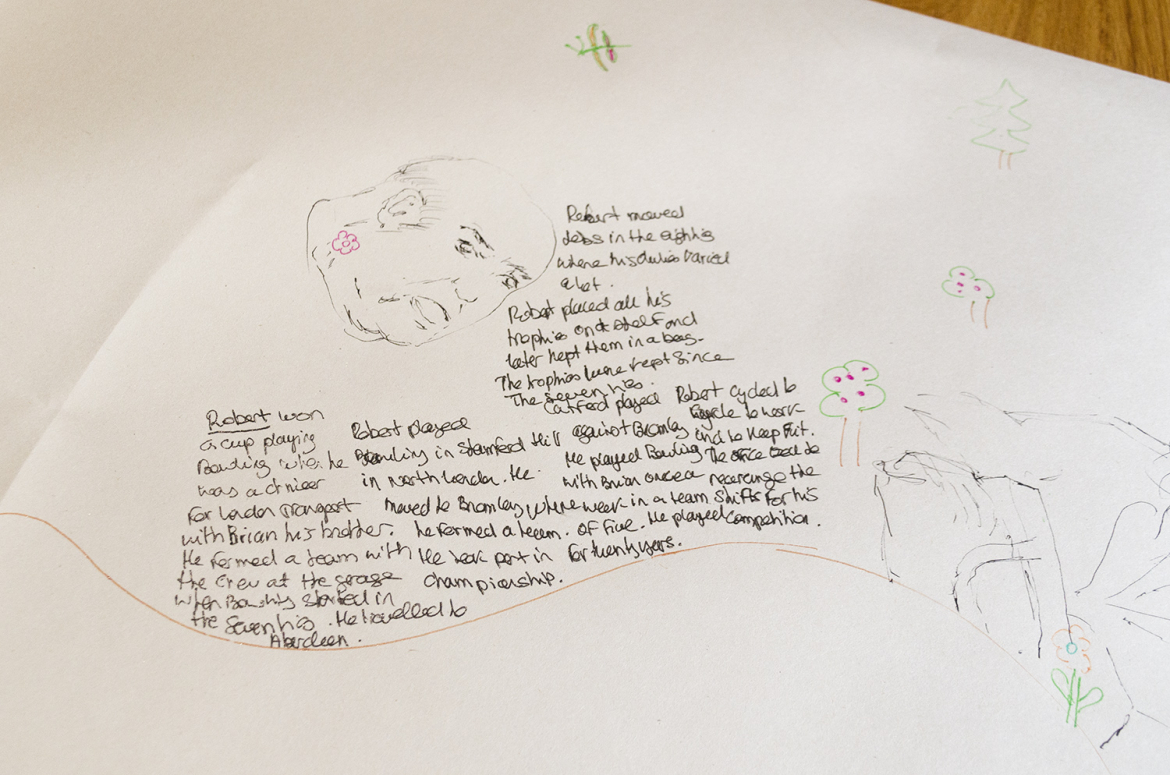 Robert moved
Jobs in the eighties
where his duties varied
a lot.
Robert placed all his
trophies on a shelf and
later kept them in a bag.
The trophies were kept since
The seventies.
Robert won
a cup playing
Bowling when he
was a driver
for London Transport
with Brian his brother.
He formed a team with
the crew at the garage
when Bowling started in
the seventies. He travelled to
Aberdeen.
Robert played
Bowling in Stamford Hill
in North London. He
moved to Bromley where
he formed a team.
He took part in
Championship.
Catford played
against Bromley
He played Bowling
with Brian once a
week in a team
of Five. He played
for twenty years.
Robert cycled to
work
and to keep Fit.
The office had to
rearrange the
shifts for his
Competition.